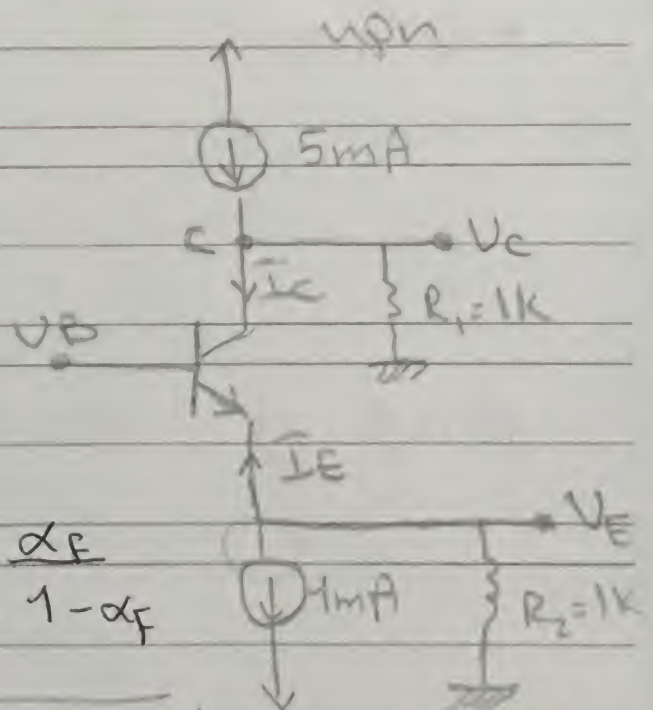 npn
5mA
C
VC
IC
R1=1K
VB
IE
VE
αF
1-αF
1mA
R2=1K